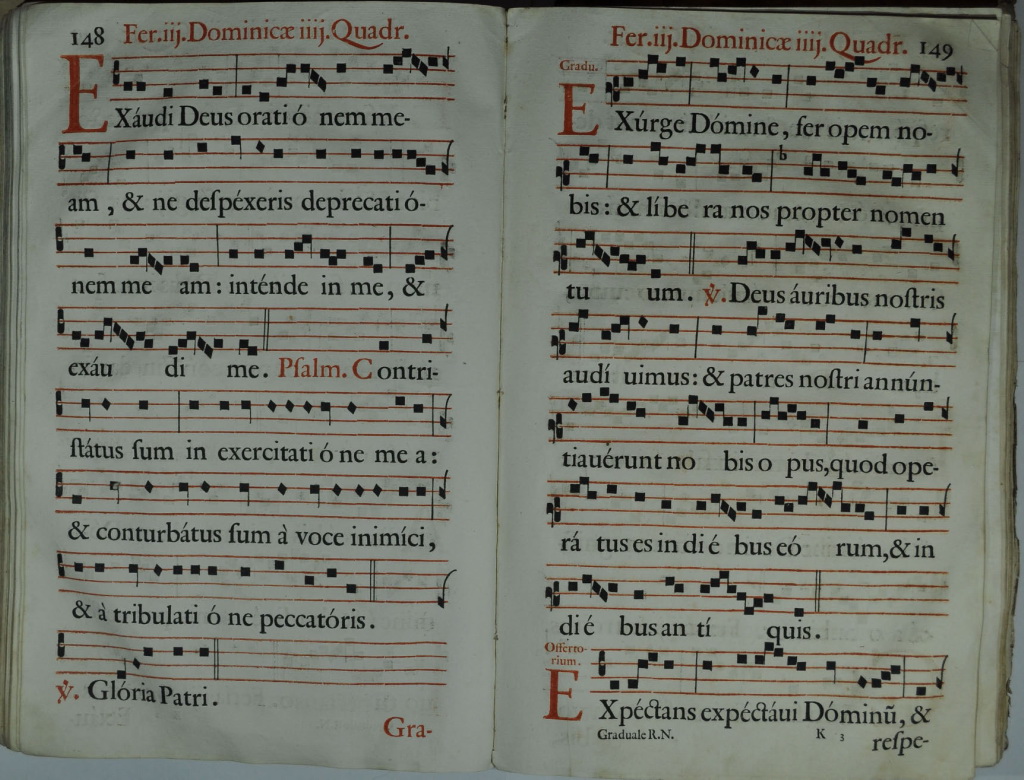 148 Fer.iij.Dominicæ iiij.Quadr.
EXáudi Deus orati ó nem me-
am , & ne deſpéxeris deprecati ó-
nem me am : inténde in me , &
exáu di me. Pſalm. Contri-
ſtátus ſum in exercitati ó ne me a :
& conturbátus ſum à voce inimíci ,
& à tribulati ó ne peccatóris.
℣. Glória Patri.
Gra-
Fer.iij.Dominicæ iiij.Quadr. 149
Gradu.
EXúrge Dómine , fer opem no-
bis : & líbe ra nos propter nomen
tu um. ℣. Deus áuribus noſtris
audí uimus : & patres noſtri annún-
tiauérunt no bis o pus, quod ope-
rá tus es in di é bus eó rum, & in
di é bus an tí quis.
Offerto-
rium.
EXpéctans expéctáui Dóminũ, &
Graduale R.N. K 3 reſpe-